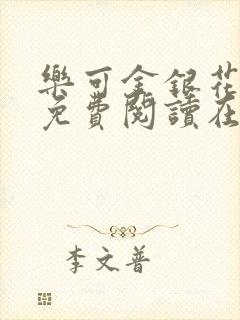 樂可金銀花
免費閱讀在
李文普